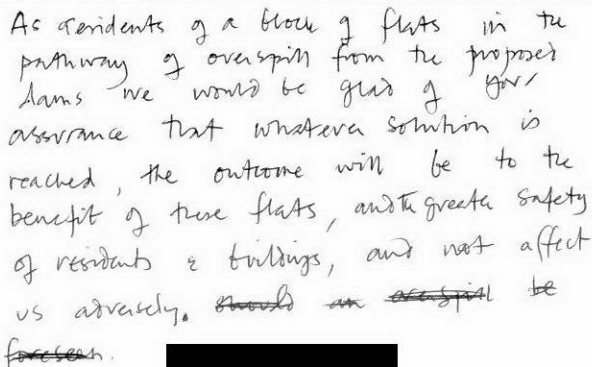 As residents of a block of flats in the
pathway of overspill from the proposed
dams we would be glad of your
assurance that whatever solution is
reached, the outcome will be to the
benefit of these flats, and the greater safety
of residents & buildings, and not affect
us adversely. should an overspill be
foreseen.